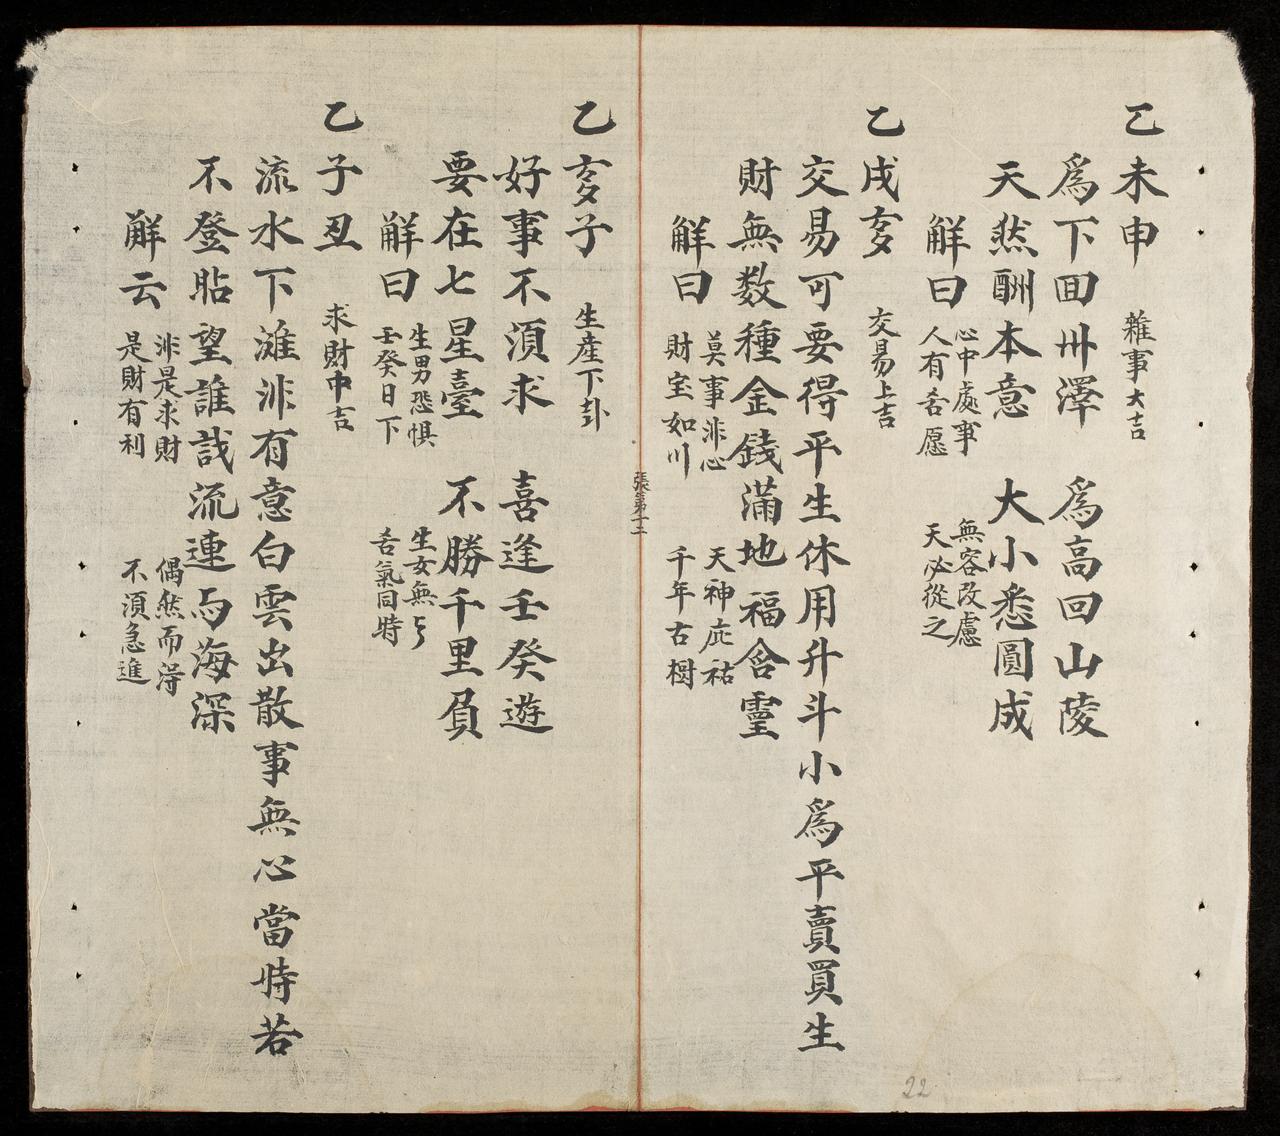 乙未申 雜事大吉
爲下囬卅澤 爲高回山陵
天然酬本意 大小悉圓成
解曰 心中處事 無容改慮
人有舌愿 天必從之
乙戌亥 交易上吉
交易可要得平生休用升斗小爲平賣買生
財無数種金錢滿地福含靈
解曰 莫事非心 天神庇祐
財宝如川 千年古樹
張第十二
乙亥子 生産下卦
好事不須求 喜逢壬癸遊
要在七星臺 不勝千里負
解曰 生男恐惧 生女無亏
壬癸日下 舌氣同時
乙子丑 求財中吉
流水下灘非有意白雲出散事無心當時若
不登贴望誰哉流連与海深
解云 非是求財 偶然而淂
是財有利 不須急進
22